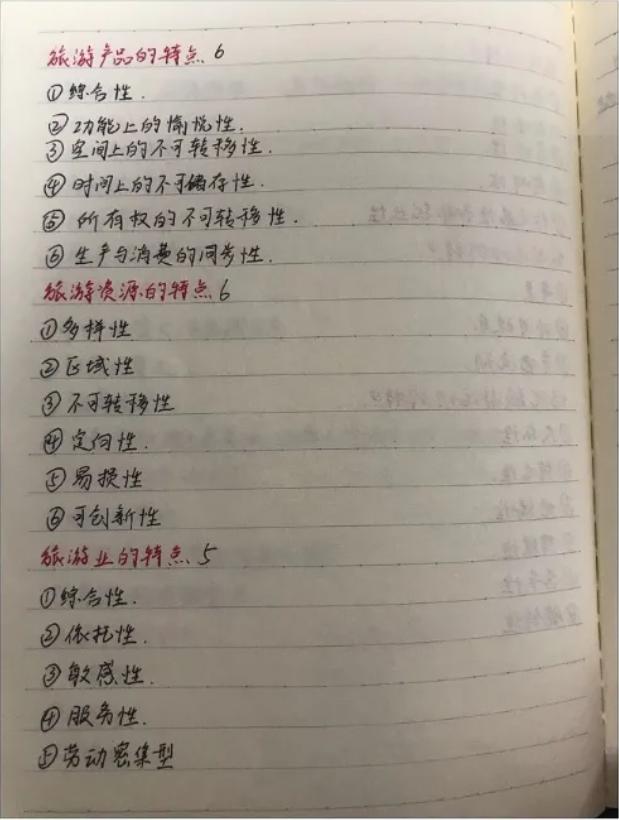 旅游产品的特点 6
①综合性.
②功能上的愉悦性.
③空间上的不可转移性.
④时间上的不可储存性.
⑤所有权的不可转移性.
⑥生产与消费的同步性.
旅游资源的特点 6
①多样性
②区域性
③不可转移性
④定向性.
⑤易损性
⑥可创新性
旅游业的特点 5
①综合性.
②依托性.
③敏感性.
④服务性.
⑤劳动密集型